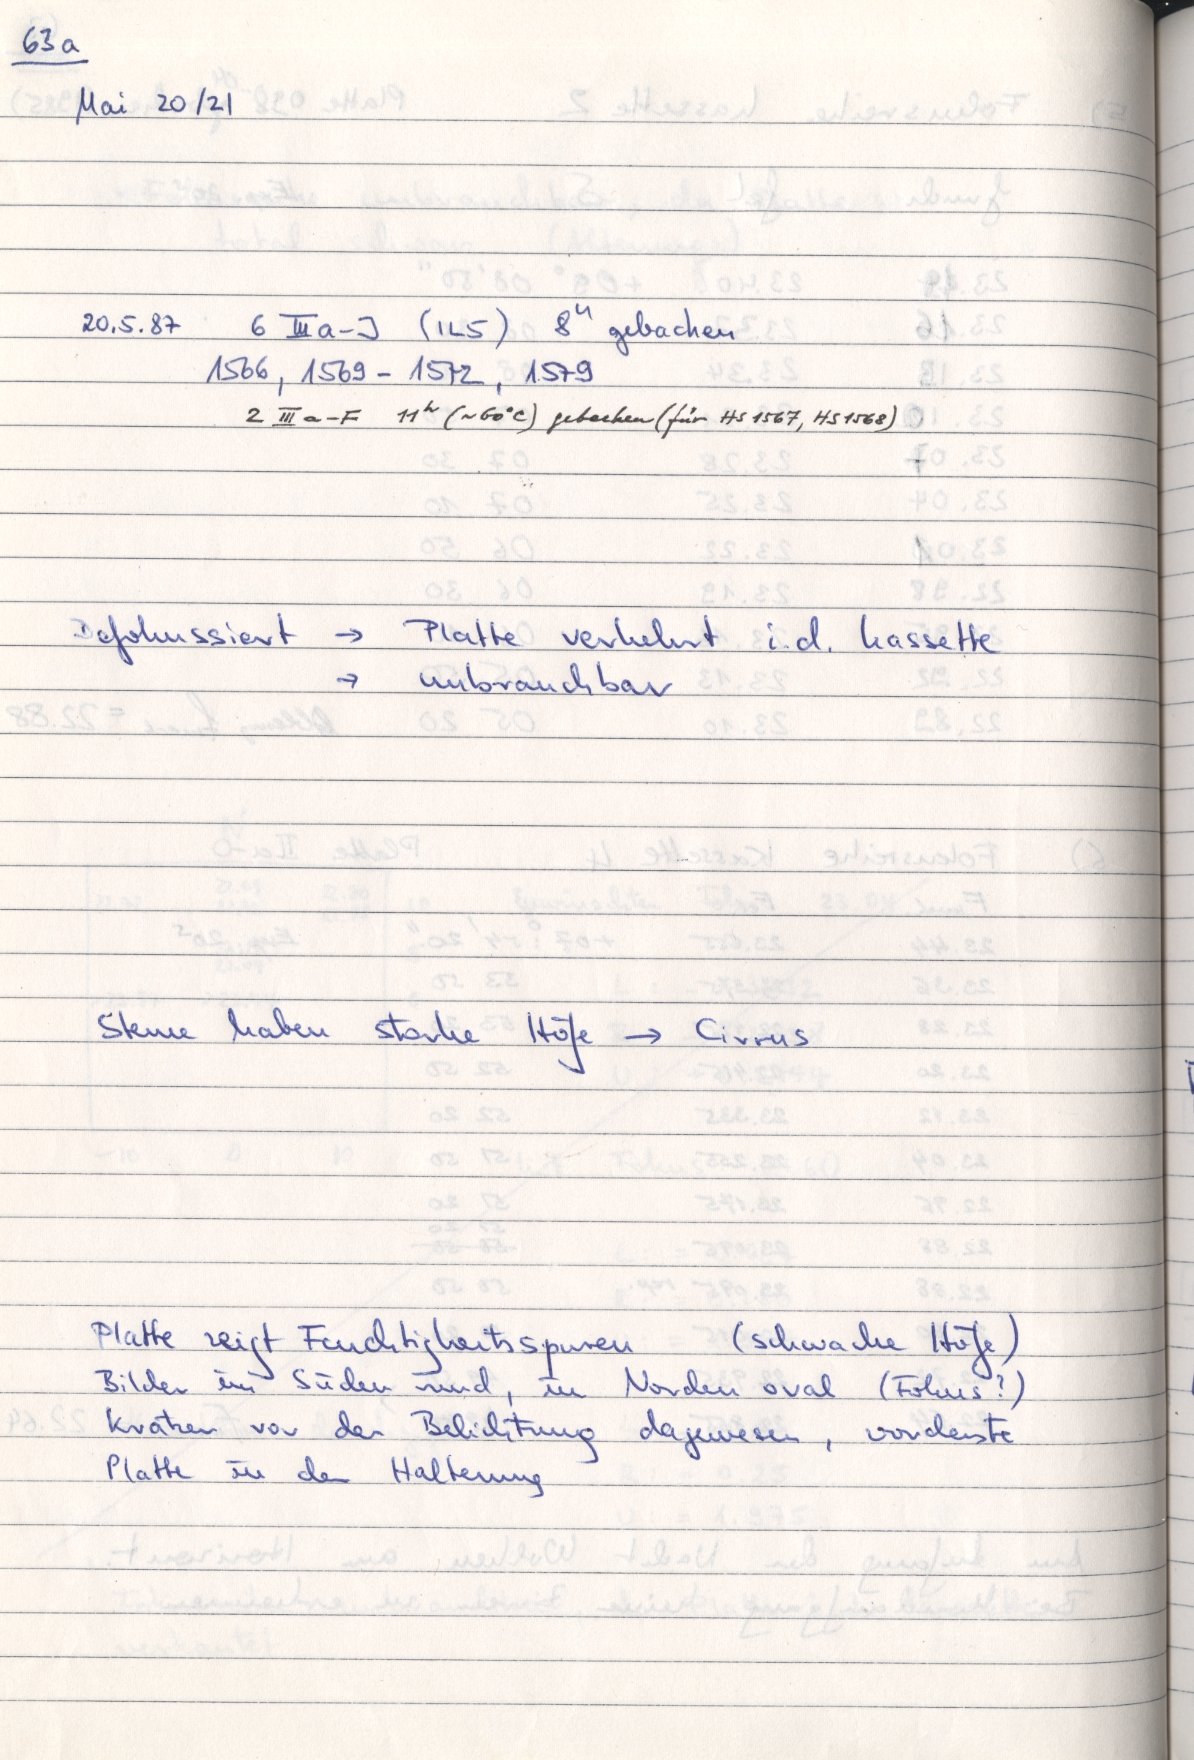 63a
Mai 20/21
20.5.87 6 IIIa-J (1L5) 8h gebacken
1566, 1569 - 1572, 1579
2 IIIa-F 11h (~60°C) gebacken (für HS1567, HS1568)
Defokussiert → Platte verkehrt i.d. Kassette
→ unbrauchbar
Sterne haben starke Höfe → Cirrus
Platte zeigt Feuchtigkeitsspuren (schwache Höfe)
Bilder im Süden rund, im Norden oval (Fokus?)
Kratzer vor der Belichtung dagewesen, vorderste
Platte in der Halterung